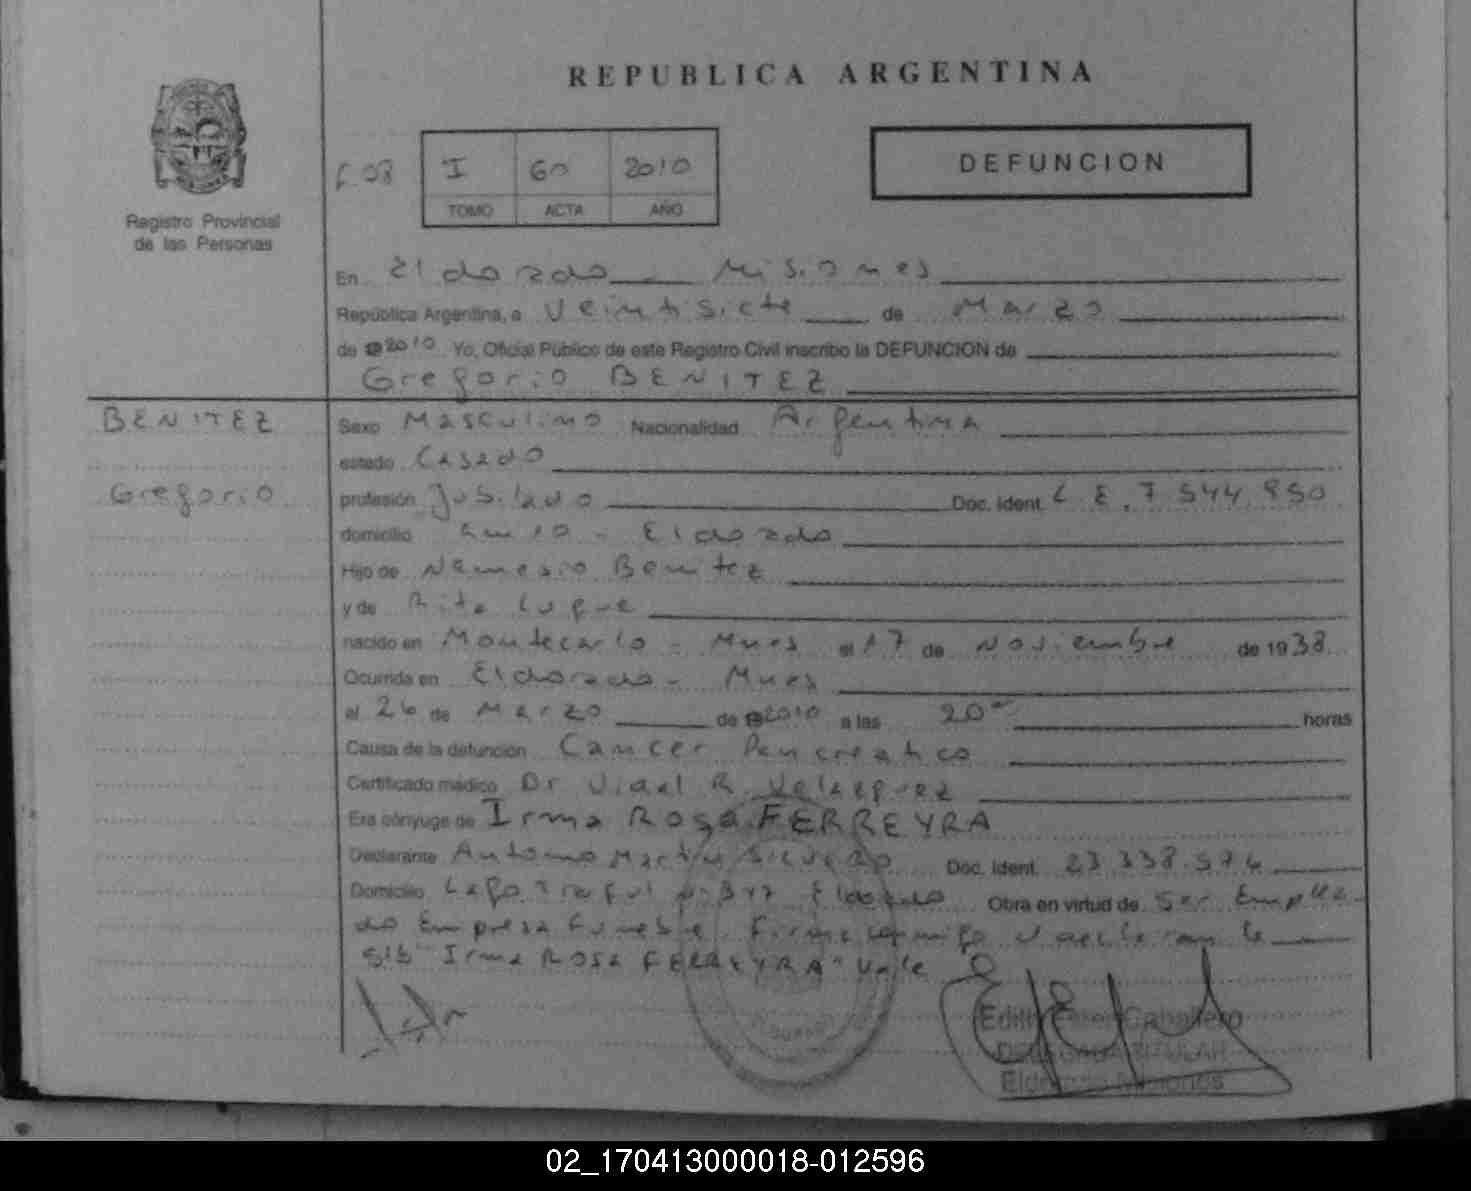 REPUBLICA ARGENTINA
DEFUNCION
F. 03 I 60 2010
TOMO ACTA AÑO
Registro Provincial
de las Personas
En Eldorado Misiones
República Argentina, a Veintisiete de Marzo
de 2010 Yo, Oficial Público de este Registro Civil inscribo la DEFUNCION de
Gregorio BENITEZ
BENITEZ
Gregorio
Sexo Masculino Nacionalidad Argentina
estado Casado
profesión Jubilado Doc. Ident. L E. 7 544 950
domicilio Km 10 - Eldorado
Hijo de Nemesio Benitez
y de Rita Luque
nacido en Montecarlo - Mnes el 17 de Noviembre de 1938
Ocurrida en Eldorado - Mnes
el 26 de Marzo de 2010 a las 20 horas
Causa de la defunción Cancer Pancreatico
Certificado médico Dr Vidal R. Velazquez
Era cónyuge de Irma Rosa FERREYRA
Declarante Antonio Martin Doc. Ident. 23 338.574
Domicilio Lago Traful Nº 347 Eldorado Obra en virtud de Ser Emplea
do Empresa Funebre. Firma conmigo
S/b "Irma ROSA FERREYRA" Vale
Edith Ester Caballero
DELEGADA TITULAR
Eldorado Misiones
02_170413000018-012596